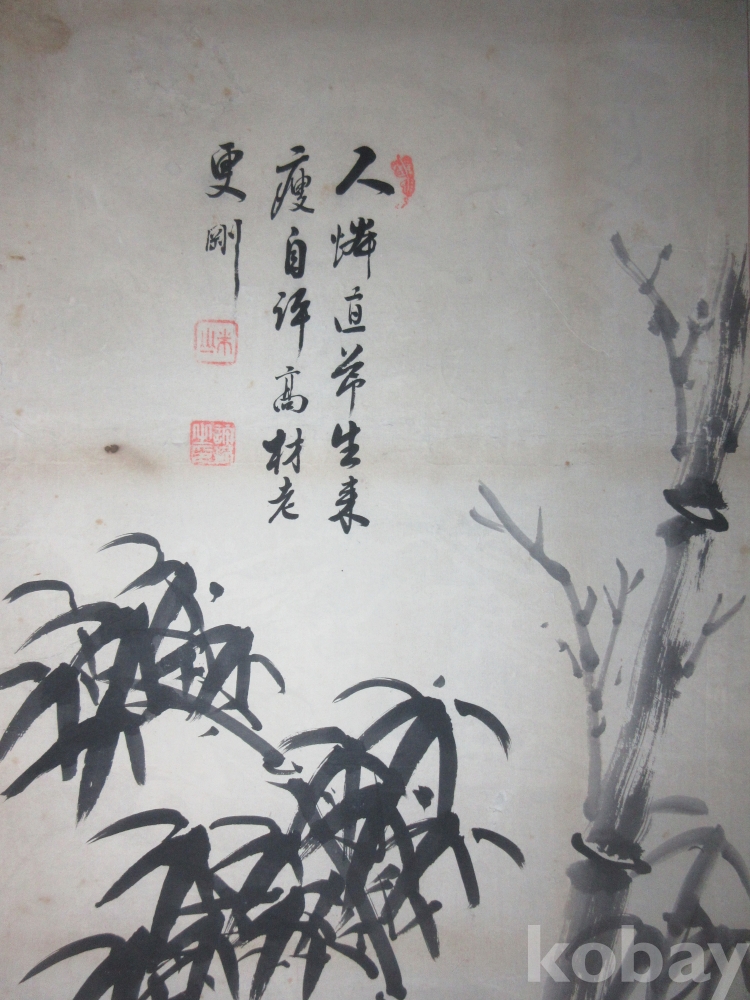 人憐直節生來
瘦自許高材老
更剛
kobay